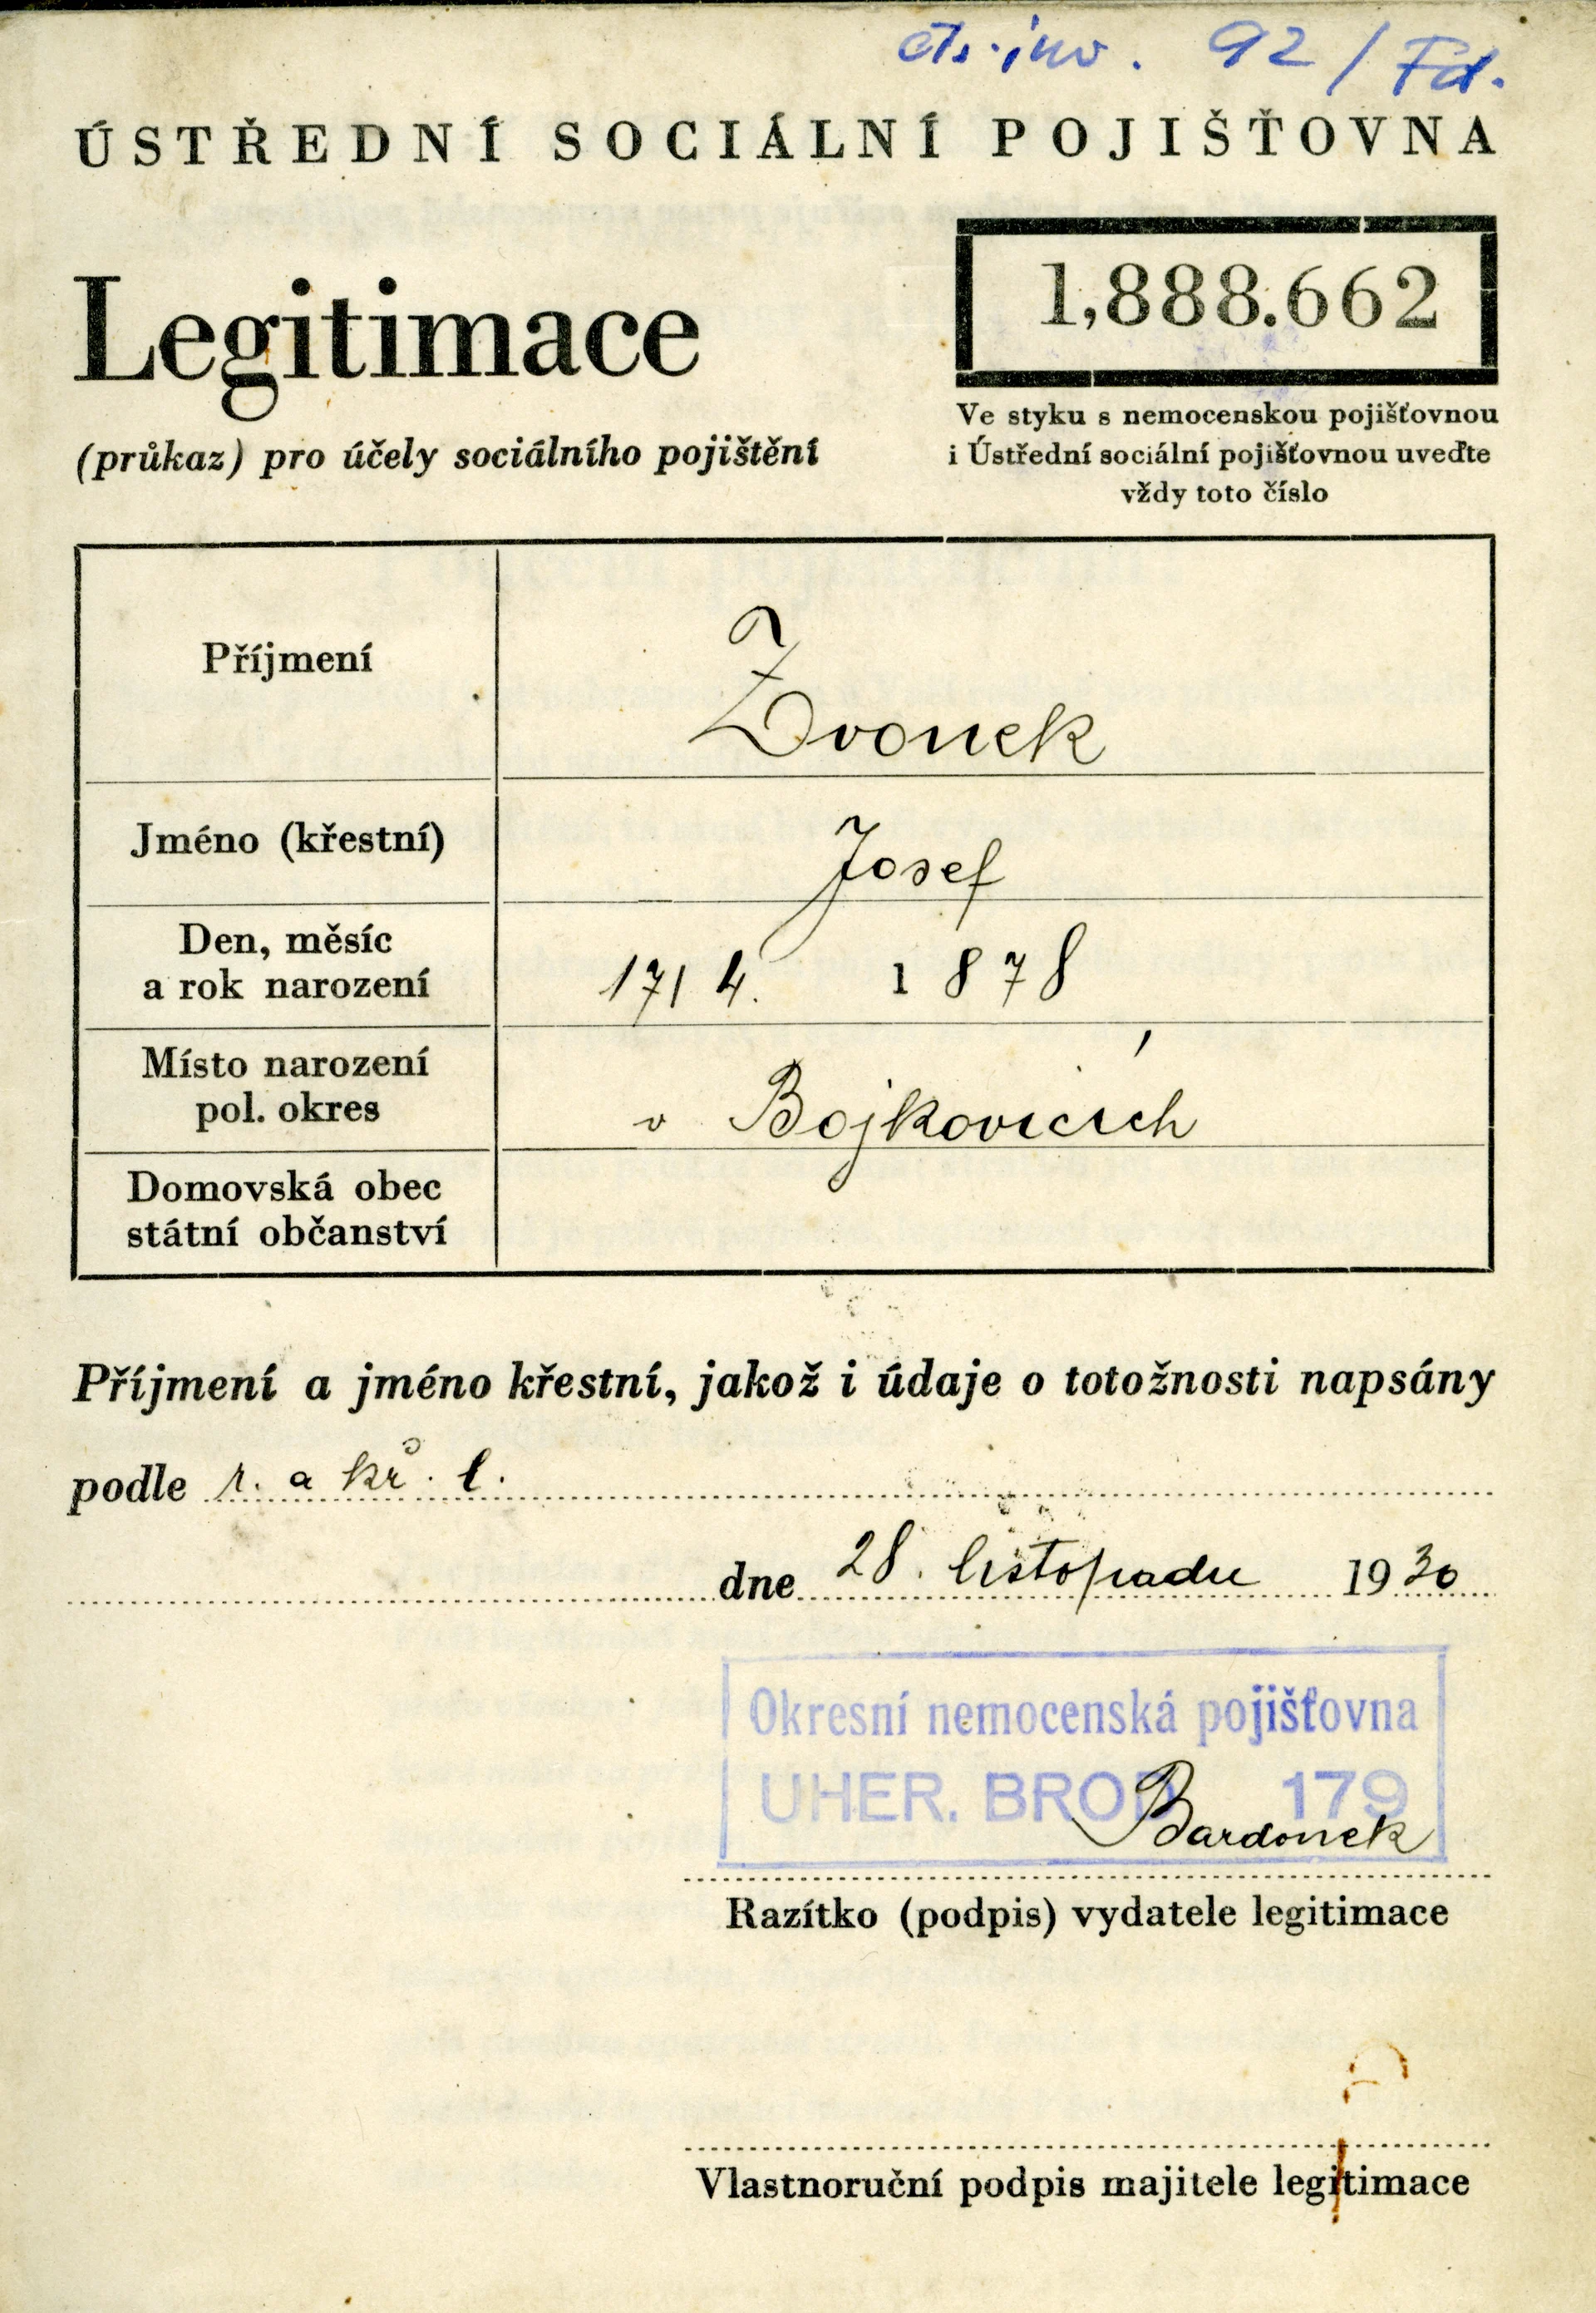 čís. inv. 92/Fd.
ÚSTŘEDNÍ SOCIÁLNÍ POJIŠŤOVNA
Legitimace
(průkaz) pro účely sociálního pojištění
1,888.662
Ve styku s nemocenskou pojišťovnou
i Ústřední sociální pojišťovnou uveďte
vždy toto číslo
Příjmení
Zvonek
Jméno (křestní)
Josef
Den, měsíc
a rok narození
17/4. 1878
Místo narození
pol. okres
v Bojkovicích
Domovská obec
státní občanství
Příjmení a jméno křestní, jakož i údaje o totožnosti napsány
podle r. a kř. l.
dne 28. listopadu 1930
Okresní nemocenská pojišťovna
UHER. BROD 179
Bardonek
Razítko (podpis) vydatele legitimace
Vlastnoruční podpis majitele legitimace